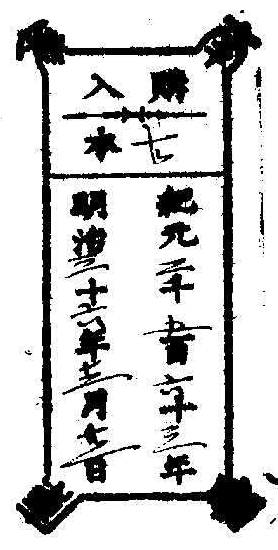 購入
七本
紀元二千五百六十三年
明治三十六年 月 日